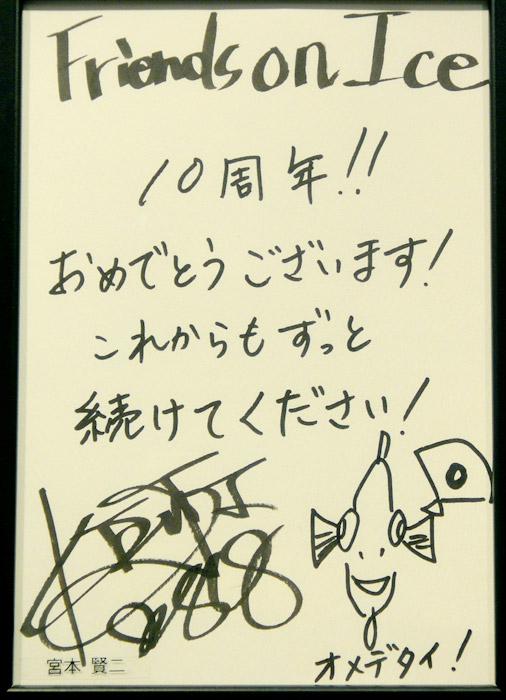 Friends on Ice
10周年!!
おめでとうございます!
これからもずっと
続けてください!
オメデタイ!
宮本 賢二